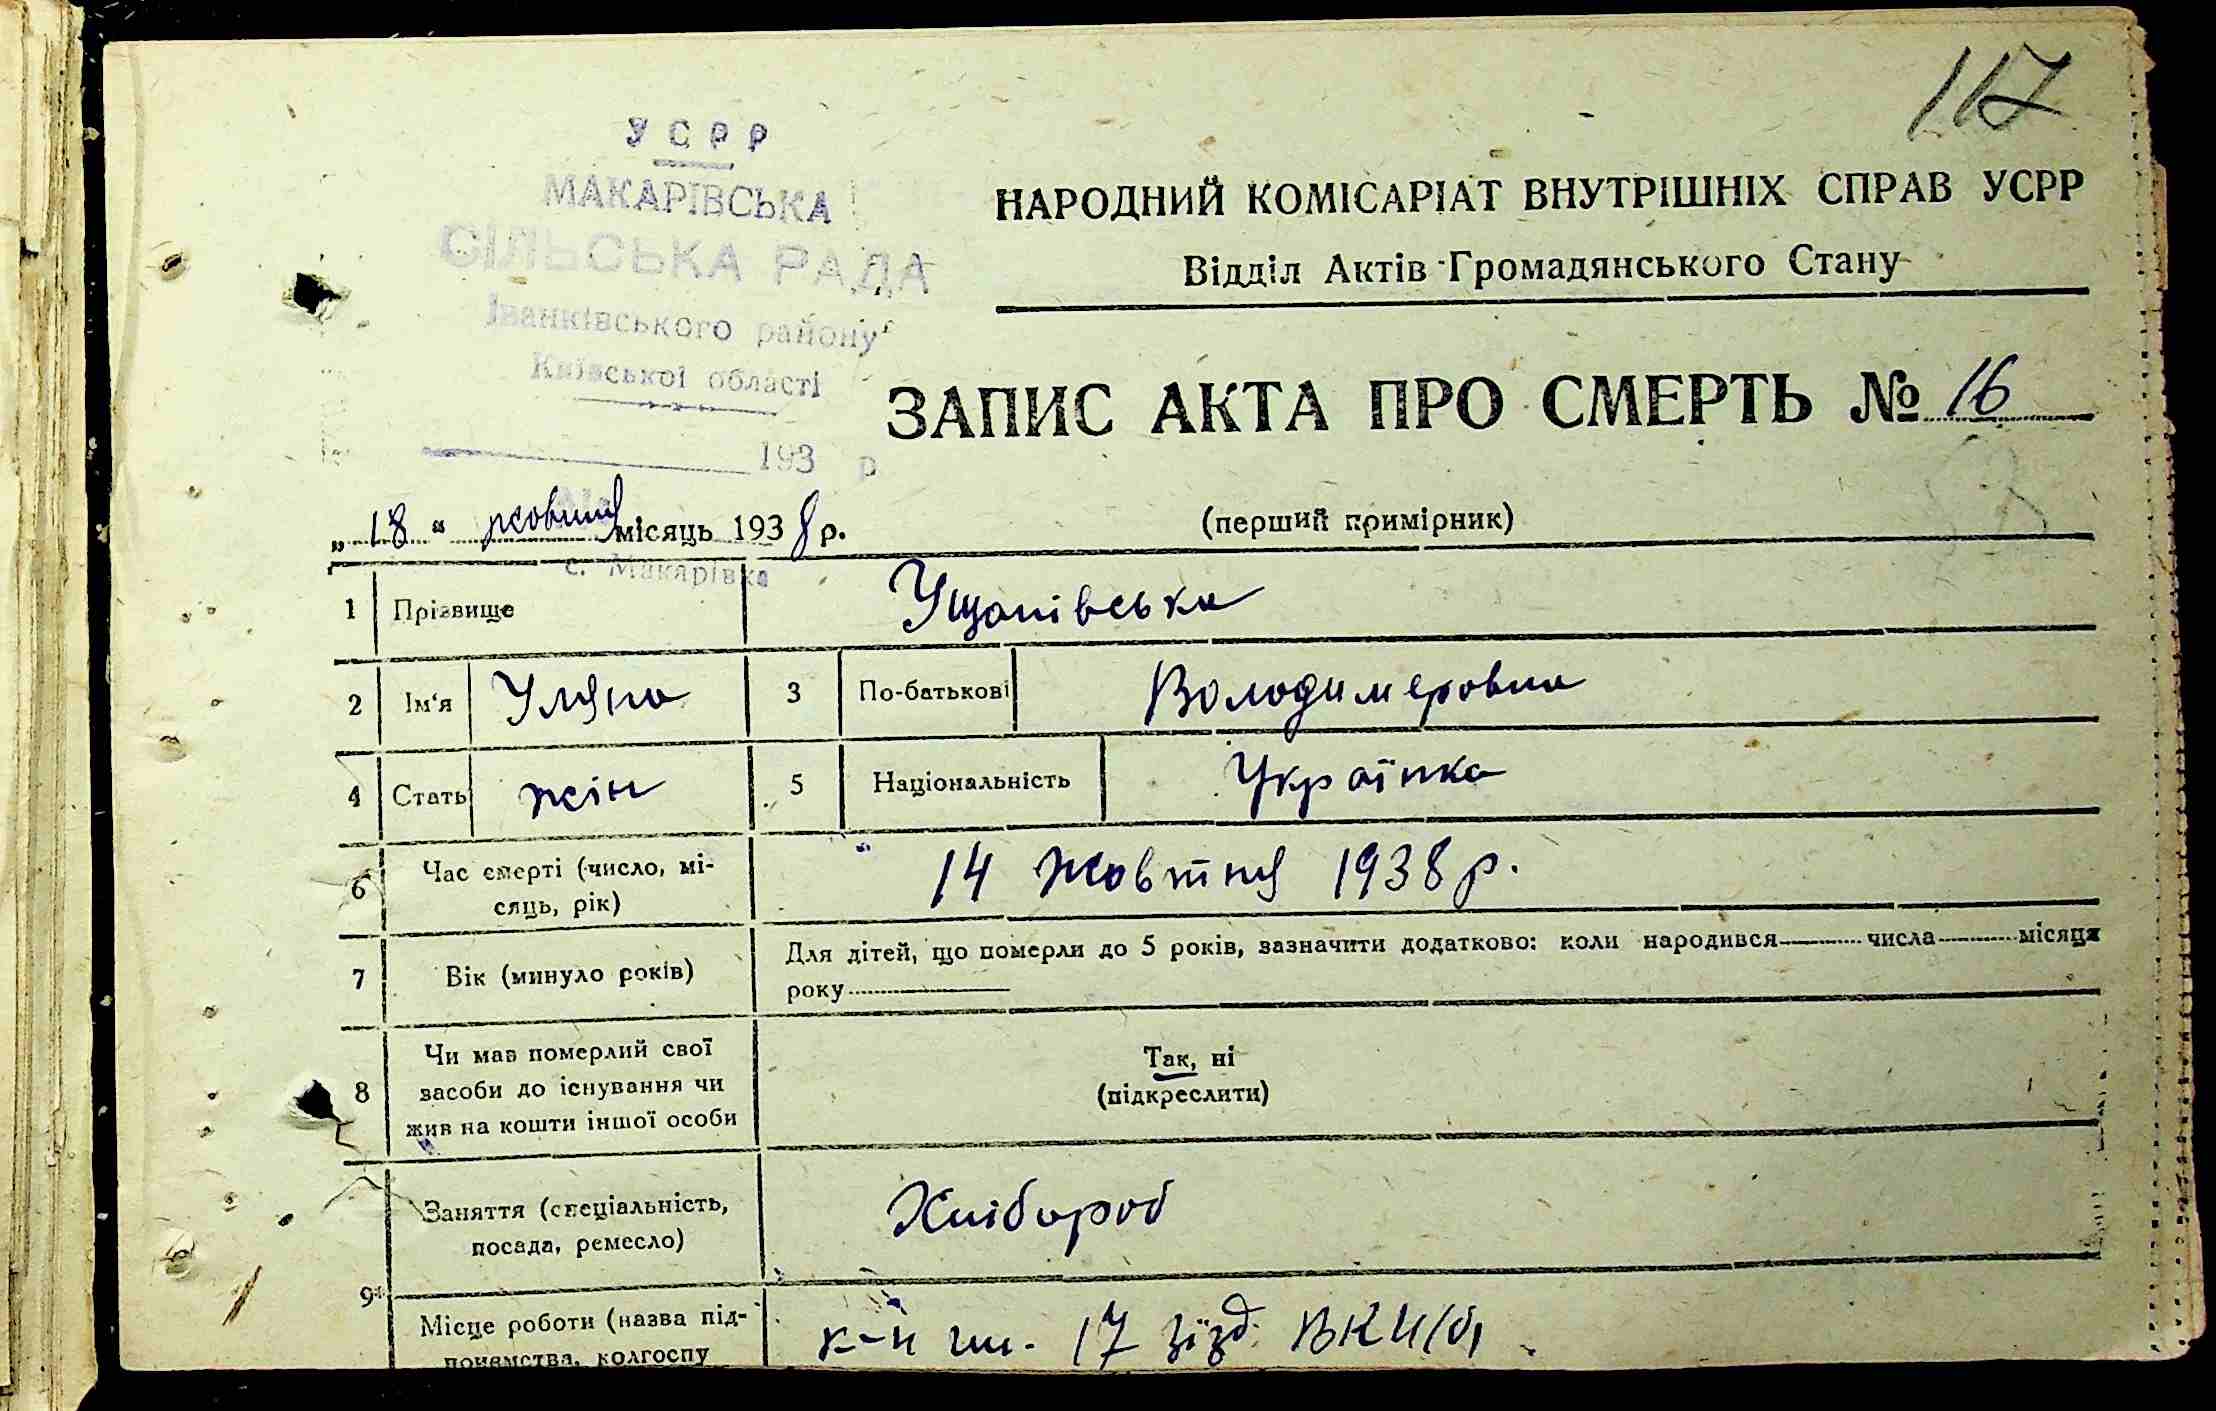 117
УСРР
МАКАРІВСЬКА
СІЛЬСЬКА РАДА
Іванківського району
Київської області
193 р
НАРОДНИЙ КОМІСАРІАТ ВНУТРІШНІХ СПРАВ УСРР
Відділ Актів Громадянського Стану
ЗАПИС АКТА ПРО СМЕРТЬ № 16
„18“ жовтня місяць 1938 р.
(перший примірник)
с. Макарівка
1 Прізвище Ущапівська
2 Ім‘я Уляна 3 По-батькові Володимеровна
4 Стать жін 5 Національність Українка
6 Час смерті (число, мі-
сяць, рік) 14 жовтня 1938 р.
7 Вік (минуло років) Для дітей, що померли до 5 років, зазначити додатково: коли народився числа місяця
року
8 Чи мав померлий свої
засоби до існування чи
жив на кошти іншої особи
Так, ні
(підкреслити)
9 Заняття (спеціальність,
посада, ремесло) Хлібороб
Місце роботи (назва під-
приємства, колгоспу
к-п ім. 17 зїзд. ВКП/б/